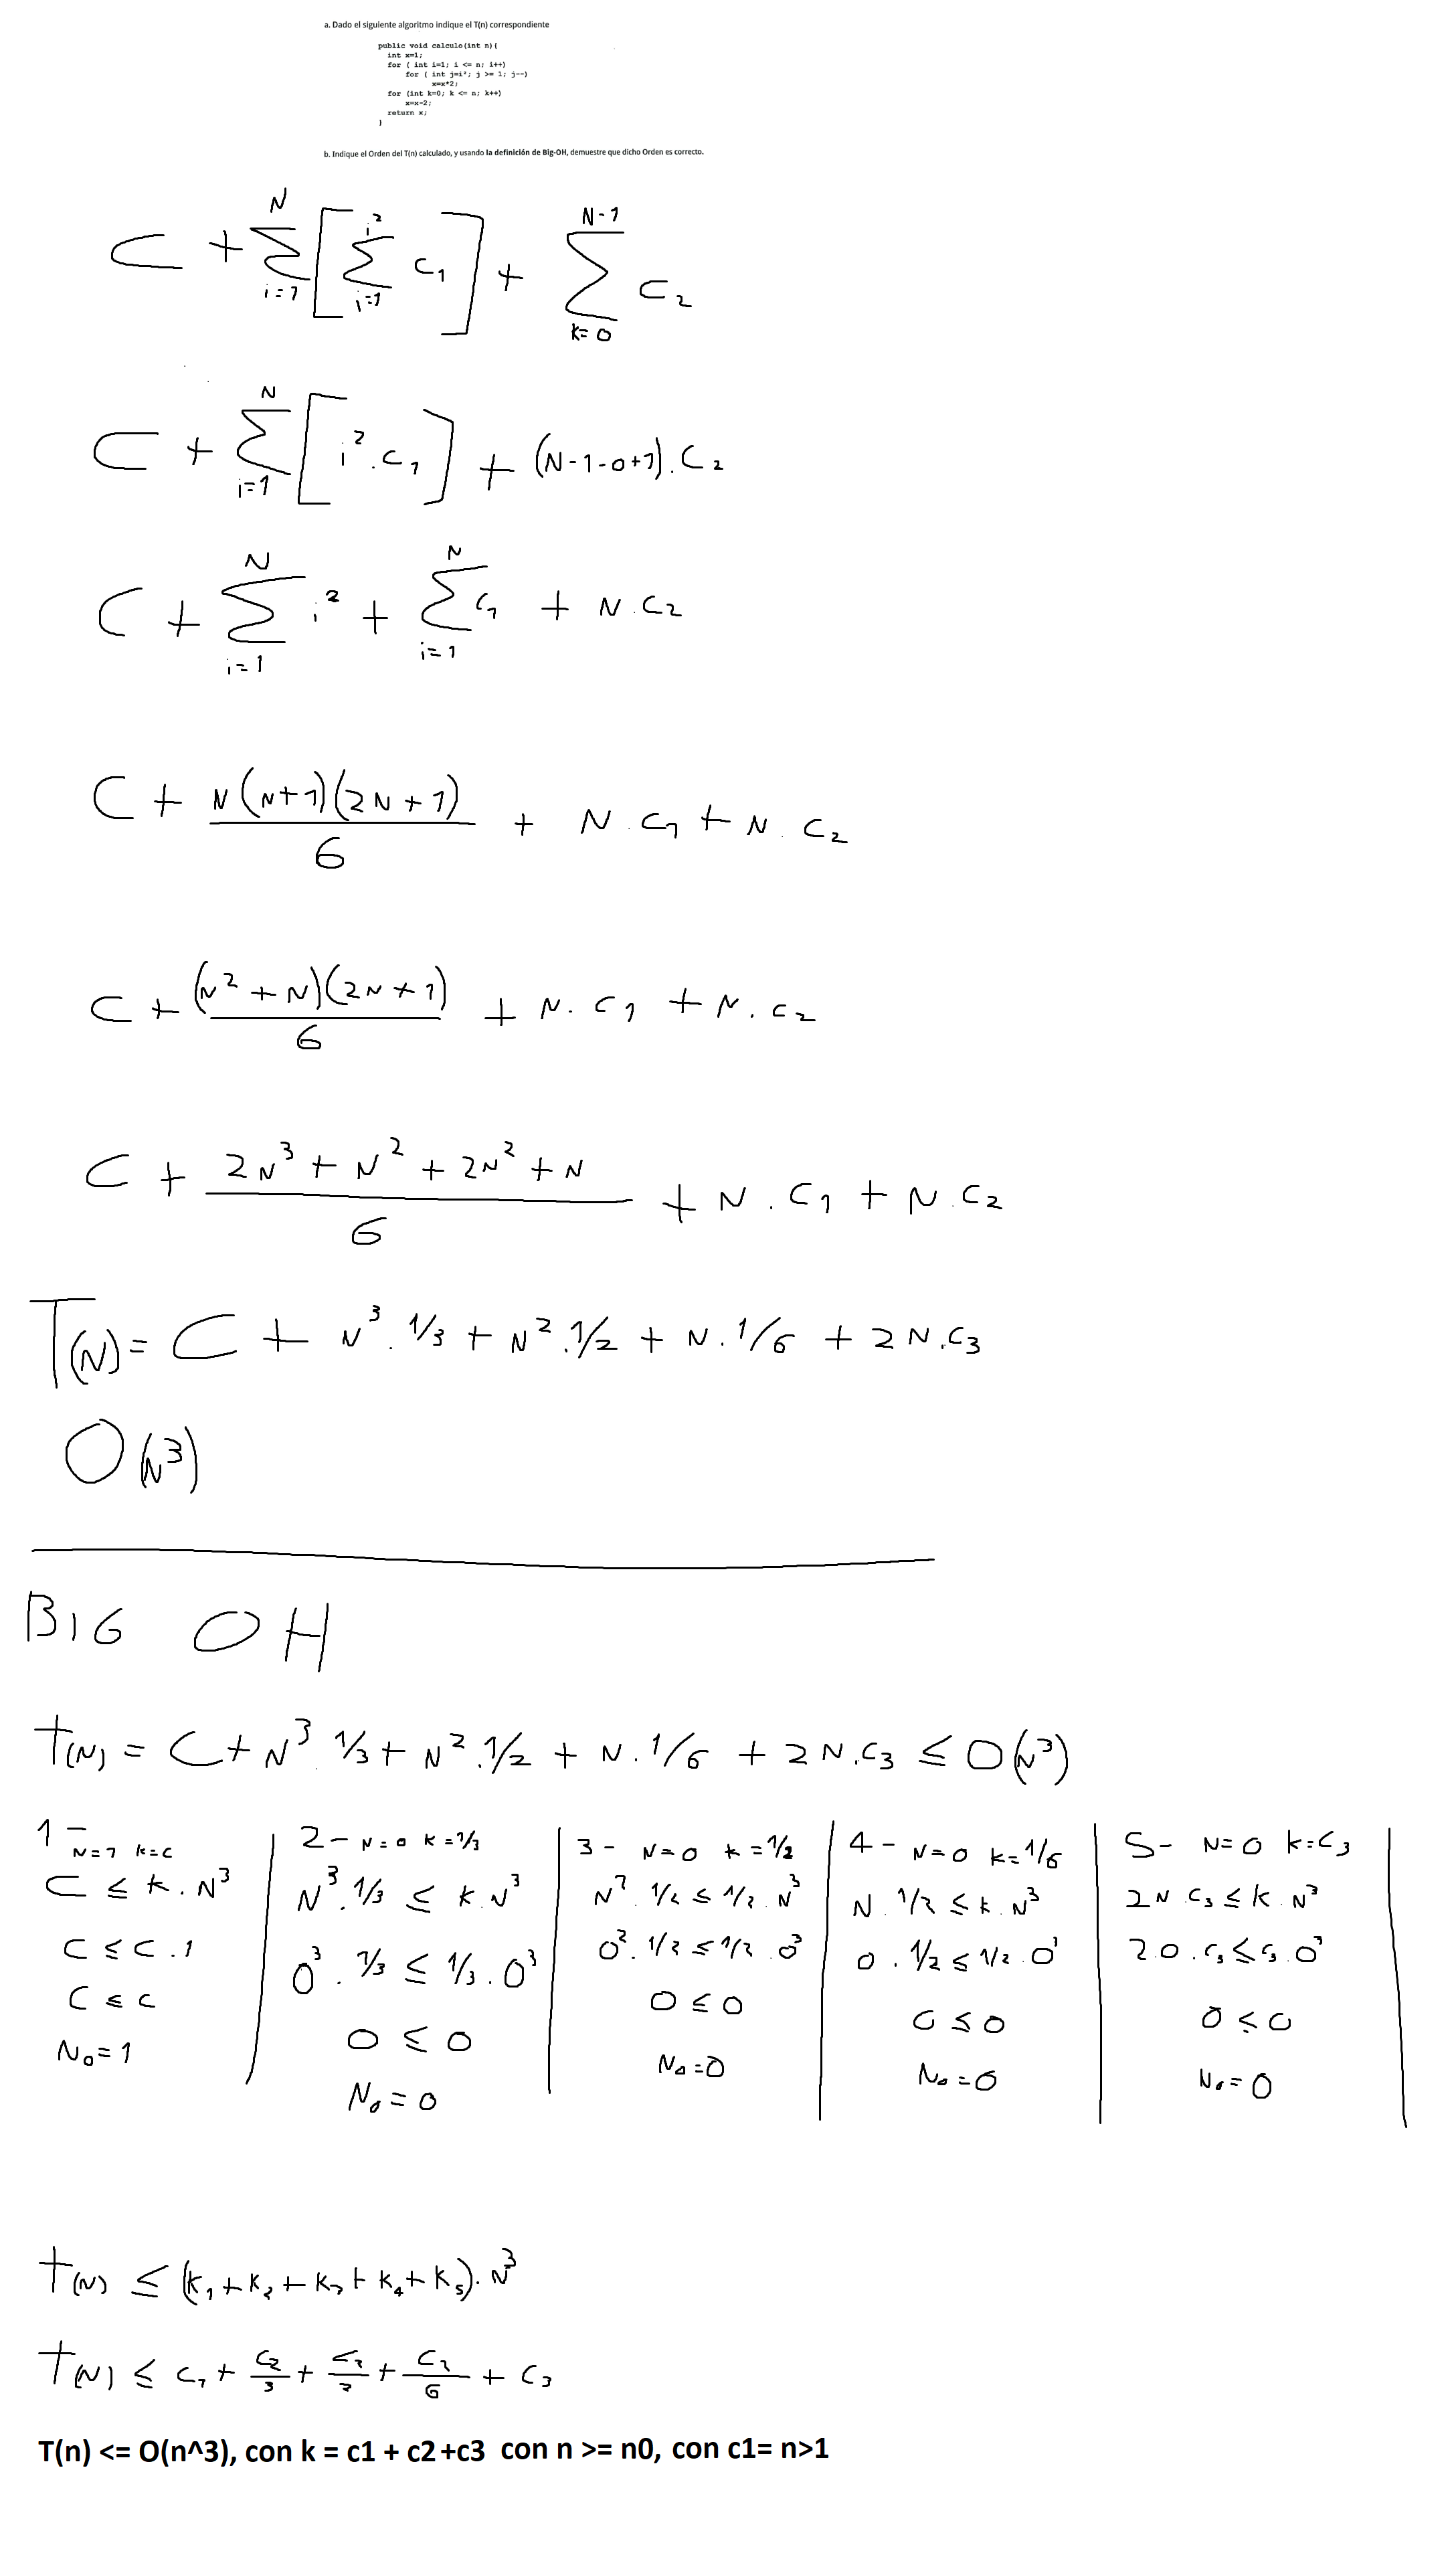 a. Dado el siguiente algoritmo indique el T(n) correspondiente
public void calculo(int n){
int x=1;
for ( int i=1; i <= n; i++)
for ( int j=i²; j >= 1; j--)
x=x*2;
for (int k=0; k <= n; k++)
x=x-2;
return x;
}
b. Indique el Orden del T(n) calculado, y usando la definición de Big-OH, demuestre que dicho Orden es correcto.
C + Σ_{i=1}^{N} [ Σ_{i=1}^{i²} C₁ ] + Σ_{k=0}^{N-1} C₂
C + Σ_{i=1}^{N} [ i² . C₁ ] + (N-1-0+1) . C₂
C + Σ_{i=1}^{N} i² + Σ_{i=1}^{N} C₁ + N . C₂
C + N(N+1)(2N+1)/6 + N . C₁ + N . C₂
C + (N²+N)(2N+1)/6 + N . C₁ + N . C₂
C + (2N³ + N² + 2N² + N)/6 + N . C₁ + N . C₂
T(N) = C + N³ . 1/3 + N² . 1/2 + N . 1/6 + 2N . C₃
O(N³)
BIG OH
T(N) = C + N³ . 1/3 + N² . 1/2 + N . 1/6 + 2N . C₃ ≤ O(N³)
1- N=1 k=C
C ≤ k . N³
C ≤ C . 1
C ≤ C
N₀=1
2- N=0 k=1/3
N³ . 1/3 ≤ k . N³
0³ . 1/3 ≤ 1/3 . 0³
0 ≤ 0
N₀=0
3- N=0 k=1/2
N² . 1/2 ≤ 1/2 . N³
0² . 1/2 ≤ 1/2 . 0³
0 ≤ 0
N₀=0
4- N=0 k=1/6
N . 1/2 ≤ k . N³
0 . 1/2 ≤ 1/2 . 0³
0 ≤ 0
N₀=0
5- N=0 k=C₃
2N . C₃ ≤ k . N³
2.0 . C₃ ≤ C₃ . 0³
0 ≤ 0
N₀=0
T(N) ≤ (k₁+k₂+k₃+k₄+k₅) . N³
T(N) ≤ C₁ + C₂/3 + C₂/2 + C₂/6 + C₃
T(n) <= O(n^3), con k = c1 + c2 +c3 con n >= n0, con c1= n>1